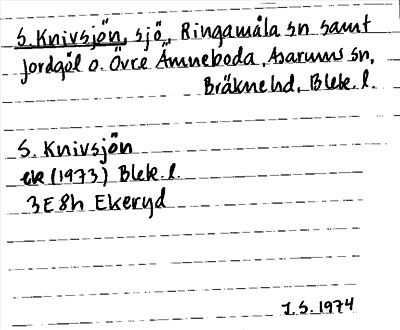 S. Knivsjön, sjö, Ringamåla sn samt
Jordgöl o. Övre Ämneboda, Asarums sn,
Bräknehd, Blek. l.
S. Knivsjön
ek (1973) Blek. l.
3E8h Ekeryd
J.S. 1974